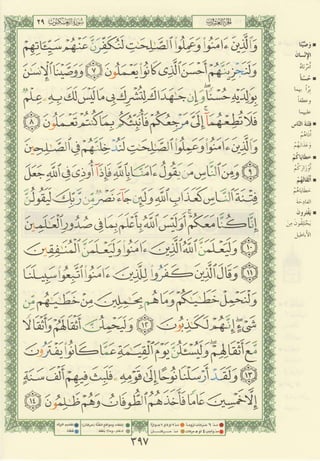 سُورَةُ العَنكَبُوت ٢٩
وَالَّذِينَ ءَامَنُوا۟ وَعَمِلُوا۟ ٱلصَّٰلِحَٰتِ لَنُكَفِّرَنَّ عَنْهُمْ سَيِّـَٔاتِهِمْ
وَلَنَجْزِيَنَّهُمْ أَحْسَنَ ٱلَّذِى كَانُوا۟ يَعْمَلُونَ ﴿٧﴾ وَوَصَّيْنَا ٱلْإِنسَٰنَ
بِوَٰلِدَيْهِ حُسْنًا ۖ وَإِن جَٰهَدَاكَ لِتُشْرِكَ بِى مَا لَيْسَ لَكَ بِهِۦ عِلْمٌ
فَلَا تُطِعْهُمَآ ۚ إِلَىَّ مَرْجِعُكُمْ فَأُنَبِّئُكُم بِمَا كُنتُمْ تَعْمَلُونَ ﴿٨﴾
وَٱلَّذِينَ ءَامَنُوا۟ وَعَمِلُوا۟ ٱلصَّٰلِحَٰتِ لَنُدْخِلَنَّهُمْ فِى ٱلصَّٰلِحِينَ
﴿٩﴾ وَمِنَ ٱلنَّاسِ مَن يَقُولُ ءَامَنَّا بِٱللَّهِ فَإِذَآ أُوذِىَ فِى ٱللَّهِ جَعَلَ
فِتْنَةَ ٱلنَّاسِ كَعَذَابِ ٱللَّهِ وَلَئِن جَآءَ نَصْرٌ مِّن رَّبِّكَ لَيَقُولُنَّ
إِنَّا كُنَّا مَعَكُمْ ۚ أَوَلَيْسَ ٱللَّهُ بِأَعْلَمَ بِمَا فِى صُدُورِ ٱلْعَٰلَمِينَ
﴿١٠﴾ وَلَيَعْلَمَنَّ ٱللَّهُ ٱلَّذِينَ ءَامَنُوا۟ وَلَيَعْلَمَنَّ ٱلْمُنَٰفِقِينَ
﴿١١﴾ وَقَالَ ٱلَّذِينَ كَفَرُوا۟ لِلَّذِينَ ءَامَنُوا۟ ٱتَّبِعُوا۟ سَبِيلَنَا
وَلْنَحْمِلْ خَطَٰيَٰكُمْ وَمَا هُم بِحَٰمِلِينَ مِنْ خَطَٰيَٰهُم مِّن
شَىْءٍ ۖ إِنَّهُمْ لَكَٰذِبُونَ ﴿١٢﴾ وَلَيَحْمِلُنَّ أَثْقَالَهُمْ وَأَثْقَالًا
مَّعَ أَثْقَالِهِمْ ۖ وَلَيُسْـَٔلُنَّ يَوْمَ ٱلْقِيَٰمَةِ عَمَّا كَانُوا۟ يَفْتَرُونَ
﴿١٣﴾ وَلَقَدْ أَرْسَلْنَا نُوحًا إِلَىٰ قَوْمِهِۦ فَلَبِثَ فِيهِمْ أَلْفَ سَنَةٍ
إِلَّا خَمْسِينَ عَامًا فَأَخَذَهُمُ ٱلطُّوفَانُ وَهُمْ ظَٰلِمُونَ ﴿١٤﴾
٣٩٧